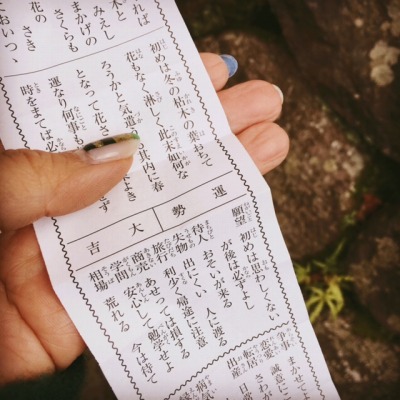 れば
木と
みえし
まかげの
さくらも
花の さき
おいつ、
初めは冬の枯木の葉おちて
花もなく淋しく此末如何な
ろうかと気遣
も其内に春
となって花さ
よき
運なり何事も
さず
時をまてば必
運勢
大吉
願望 初めは思わしくない
が後は必ずよし
待人 おそいが来る
失物 出にくい 人に渡る
旅行 利少し帰途に注意
商売 あせっては損する
学問 安心して勉学せよ
相場 今は待て 荒れる
争事 まかせて
恋愛 誠意に
転居 さ
出産